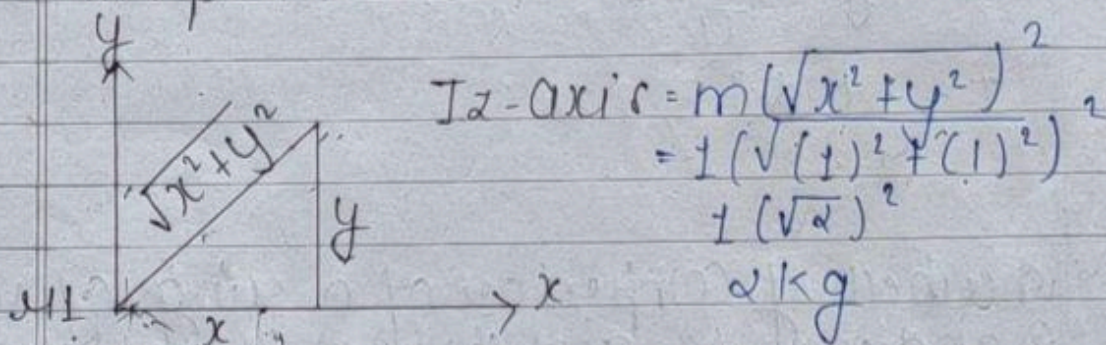 y
√x² + y²
y
x
x
I2-axis = m(√x² + y²)²
= 1(√(1)² + (1)²)²
1(√2)²
2kg